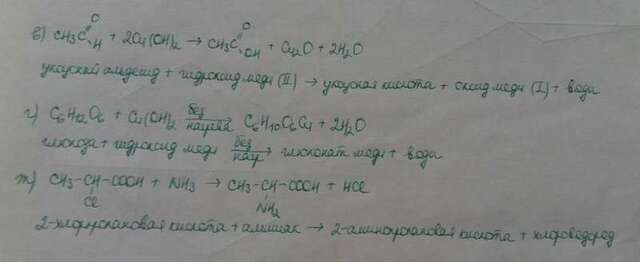 в) CH3C=O–H + 2Cu(OH)2 → CH3C=O–OH + Cu2O + 2H2O
уксусный альдегид + гидроксид меди (II) → уксусная кислота + оксид меди (I) + вода
г) C6H12O6 + Cu(OH)2 без нагрева C6H10O6Cu + 2H2O
глюкоза + гидроксид меди без наг → глюконат меди + вода
ж) CH3–CH–COOH + NH3 → CH3–CH–COOH + HCl
Cl NH2
2-хлорпропановая кислота + аммиак → 2-аминопропановая кислота + хлороводород